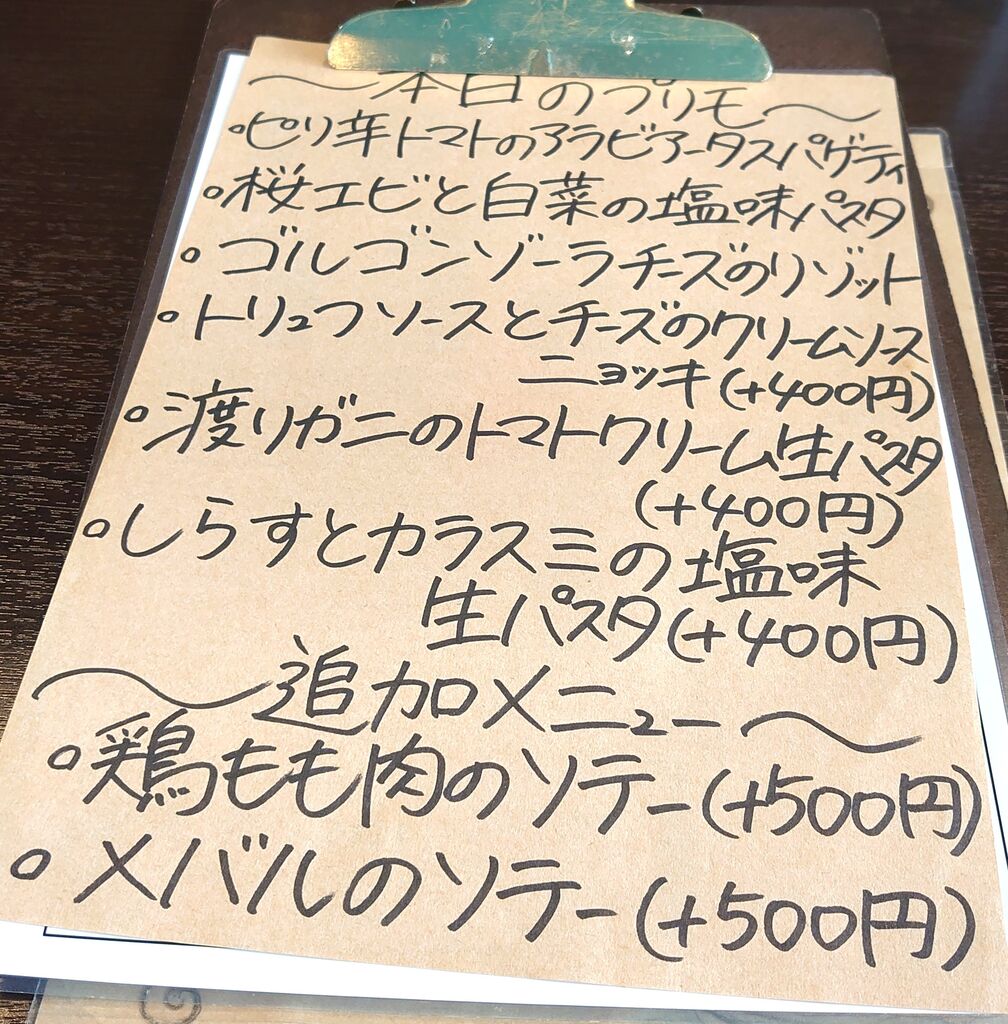 〜本日のプリモ〜
・ピリ辛トマトのアラビアータスパゲティ
・桜エビと白菜の塩味パスタ
・ゴルゴンゾーラチーズのリゾット
・トリュフソースとチーズのクリームソース
ニョッキ(+400円)
・渡りガニのトマトクリーム生パスタ
(+400円)
・しらすとカラスミの塩味
生パスタ(+400円)
〜追加メニュー〜
・鶏もも肉のソテー(+500円)
・メバルのソテー(+500円)